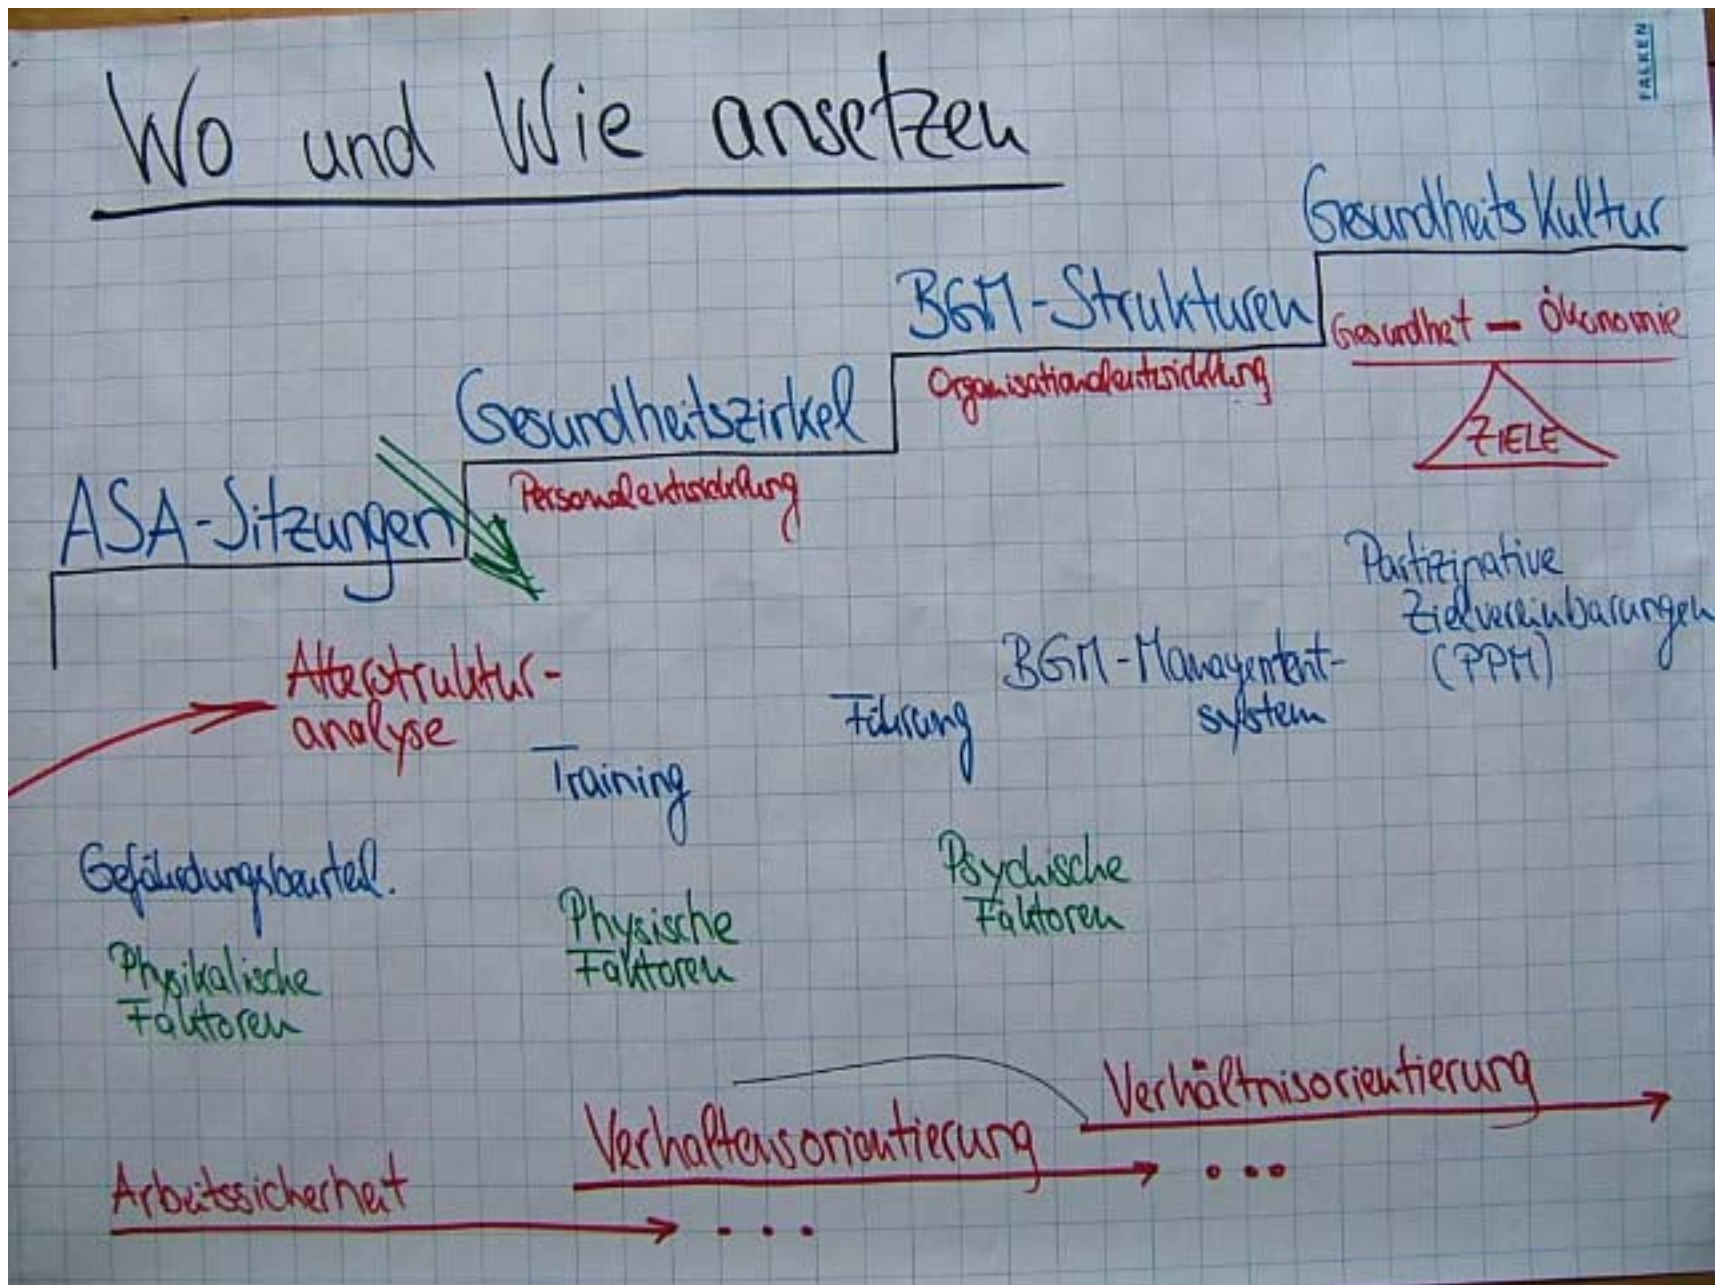 Wo und Wie ansetzen
FALKEN
GesundheitsKultur
BGM-Strukturen
Gesundheit - Ökonomie
Organisationalentwicklung
ZIELE
Gesundheitszirkel
Personalentwicklung
ASA-Sitzungen
Partizipative
Zielvereinbarungen
(PPM)
BGM-Management-
system
Altersstruktur-
analyse
Führung
Training
Gefährdungsbeurteil.
Psychische
Faktoren
Physische
Faktoren
Physikalische
Faktoren
Verhältnisorientierung
Verhaltensorientierung
...
Arbeitssicherheit
...